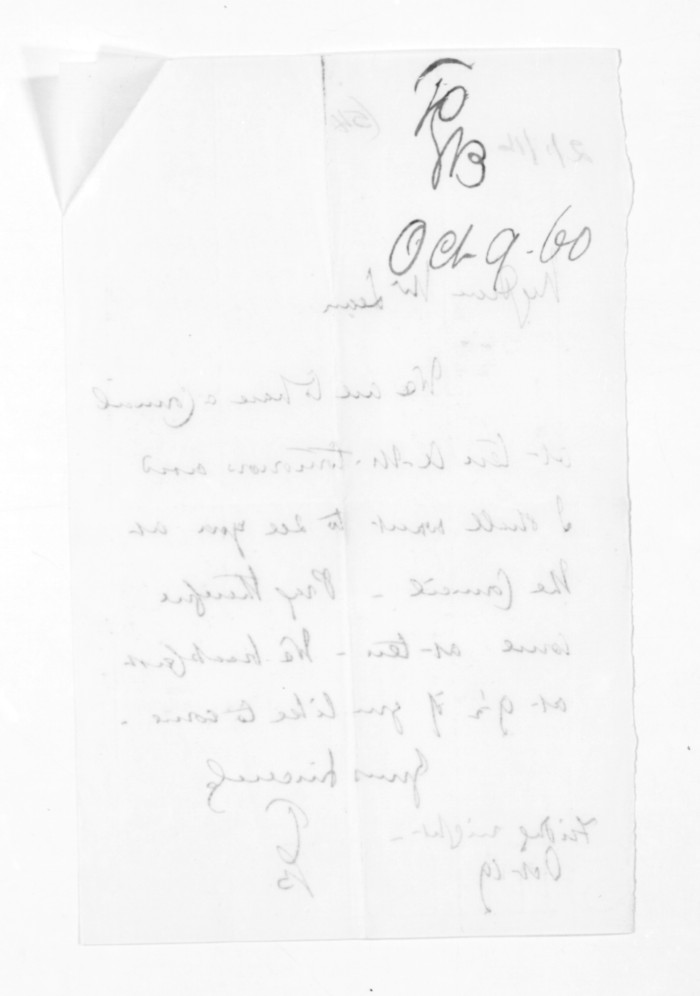 TG
B
Oct 9.60
My dear McLean
We are to have a Council
at ten A.M. tomorrow and
I shall want to see you at
the Council - Pray therefore
come at ten - We breakfast
at 9½ if you like to come.
Yours sincerely
Friday night
Oct 19